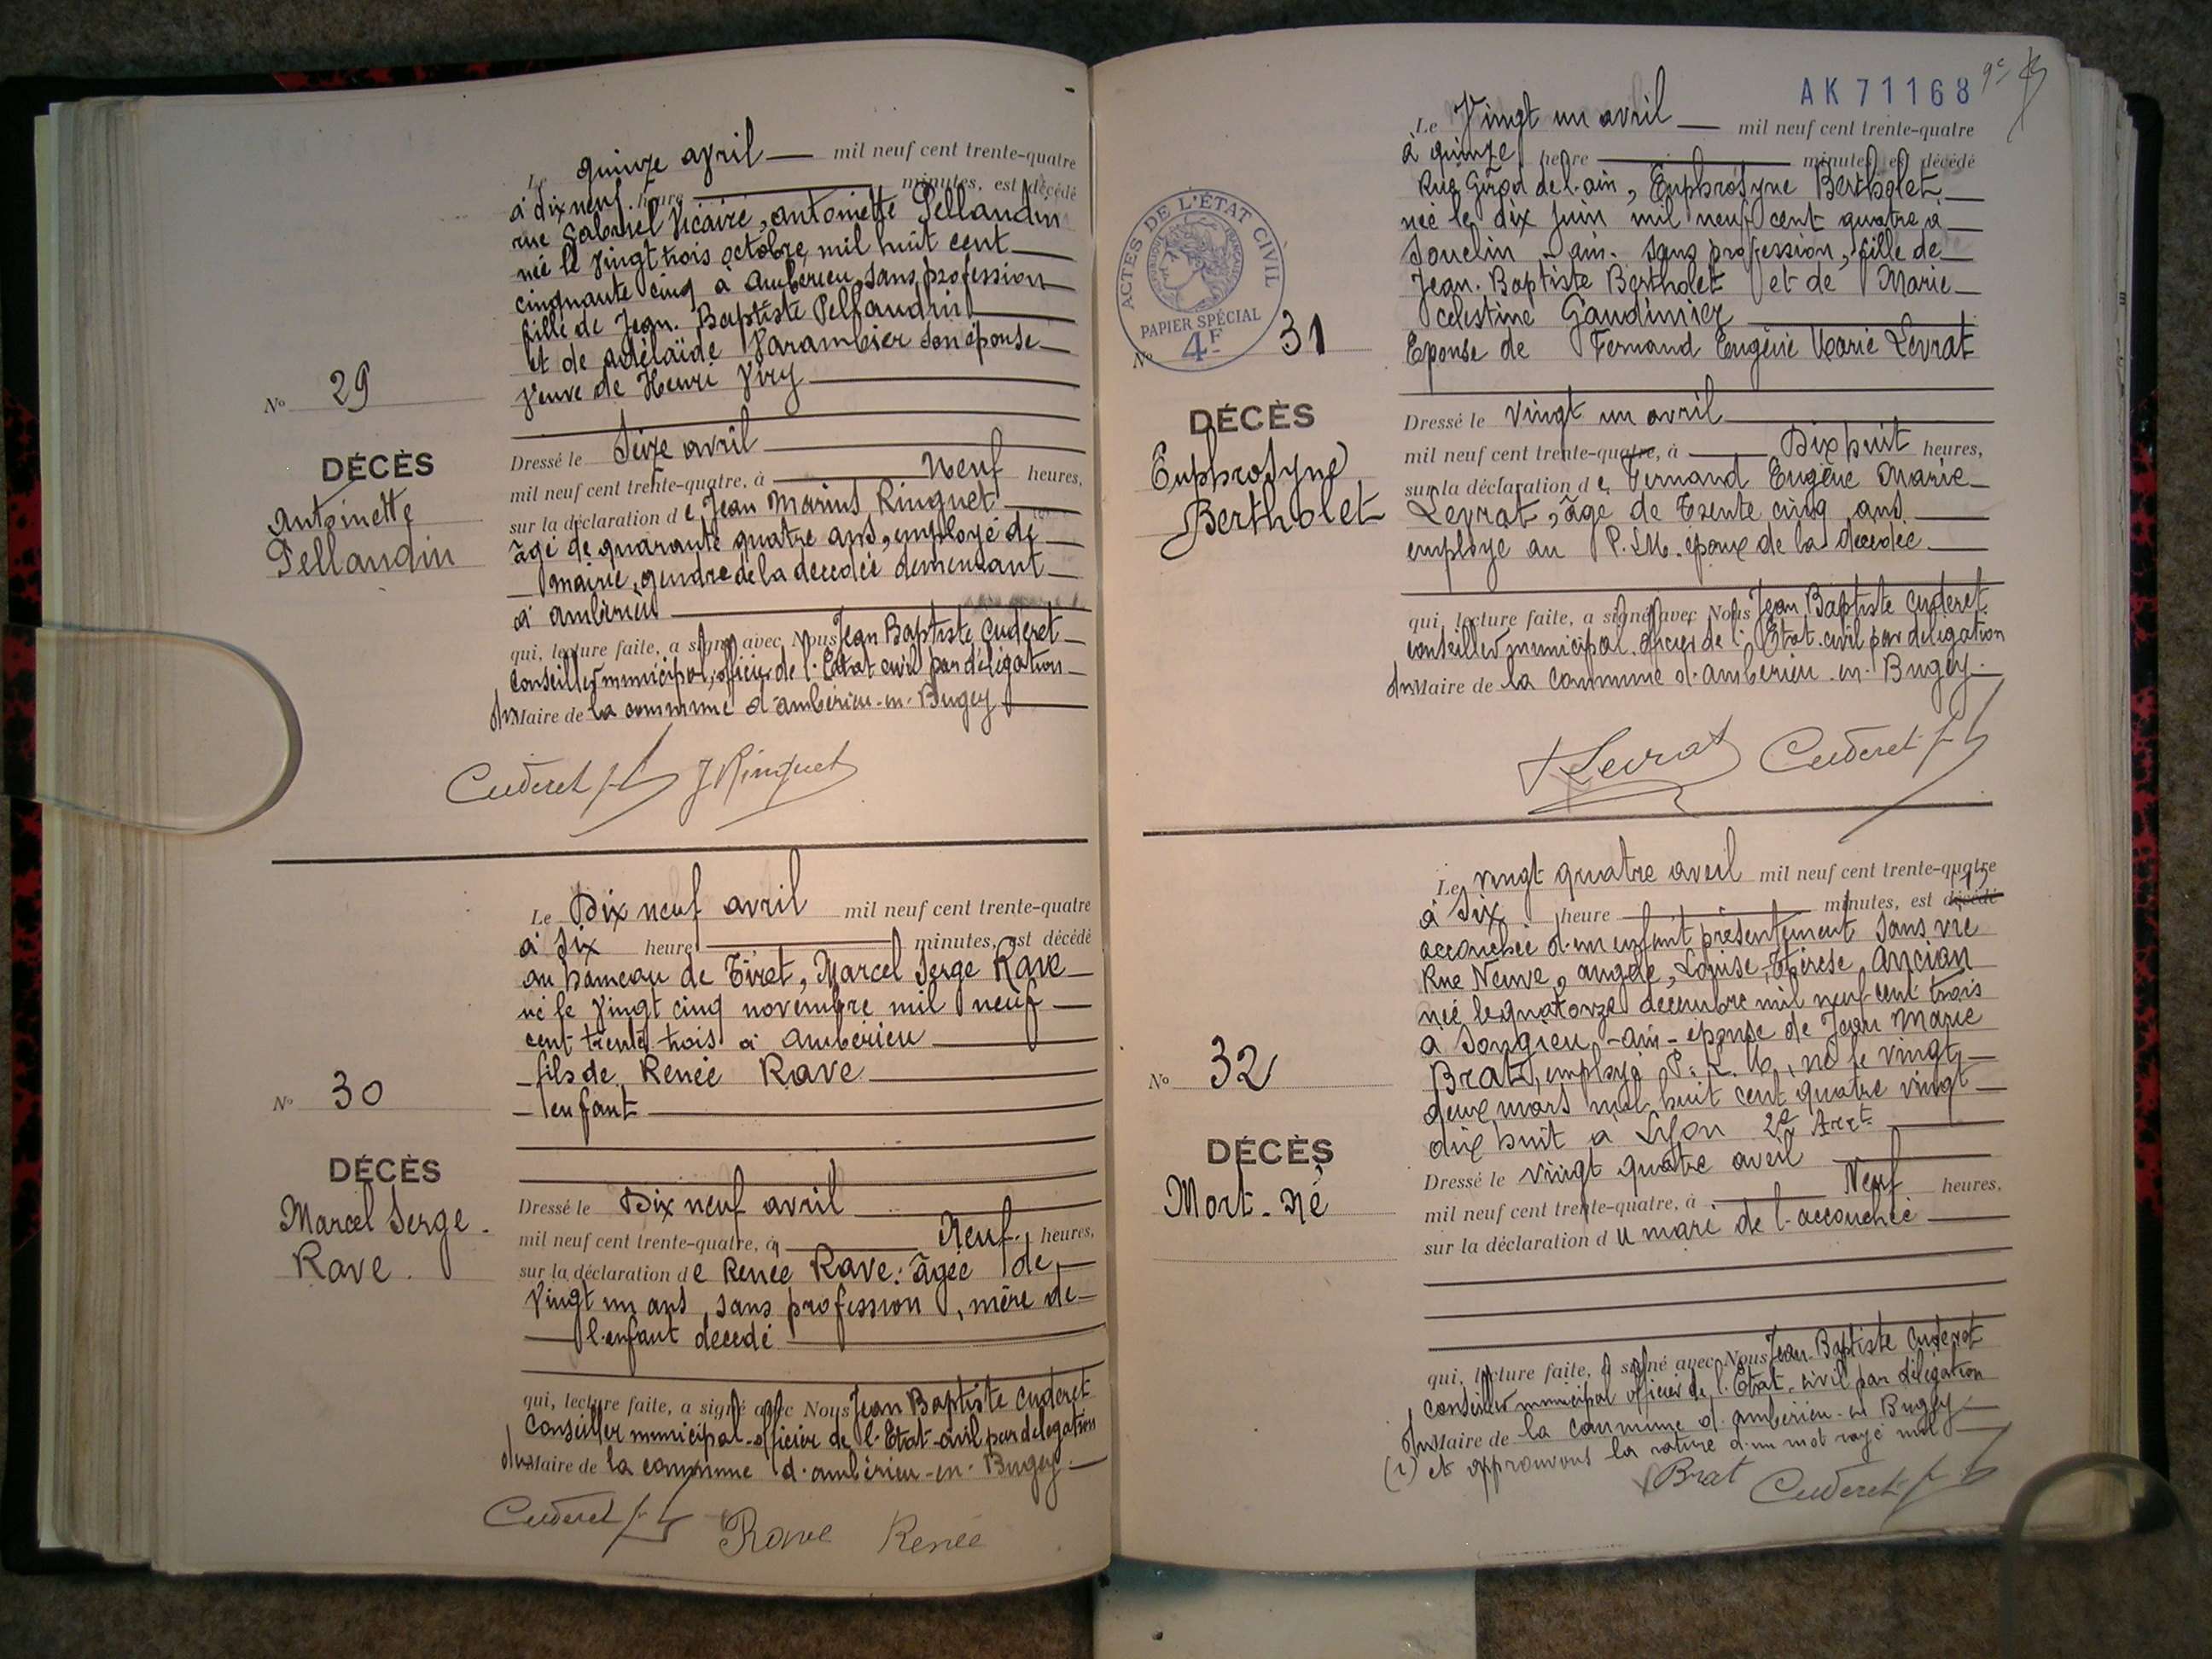 Le quinze avril mil neuf cent trente-quatre
à dix neuf heure minutes, est décédé
rue Gabriel Vicaire, antoinette Pellaudin
née le vingt trois octobre mil huit cent
cinquante cinq à Ambérieu, sans profession
fille de Jean-Baptiste Pellaudin
et de adélaïde Varambier son épouse
veuve de Henri Viry
No 29
DÉCÈS
Antoinette
Pellaudin
Dressé le Seize avril
mil neuf cent trente-quatre, à Neuf heures,
sur la déclaration de Jean Marius Ringuet
âgé de quarante quatre ans, employé de
mairie, gendre de la décédée demeurant
à ambérieu
qui, lecture faite, a signé avec Nous Jean Baptiste Cuderet
Conseiller municipal, officier de l'Etat civil par délégation
du Maire de la commune d'ambérieu-en-Bugey
Cuderet J. Ringuet
Le Dix neuf avril mil neuf cent trente-quatre
à six heure minutes, est décédé
au hameau de Tiret, Marcel Serge Rave
né le vingt cinq novembre mil neuf
cent trente trois à ambérieu
fils de Renée Rave
enfant
No 30
DÉCÈS
Marcel Serge
Rave
Dressé le Dix neuf avril
mil neuf cent trente-quatre, à Neuf heures,
sur la déclaration de Renée Rave. âgée de
vingt un ans, sans profession, mère de
l'enfant décédé
qui, lecture faite, a signé avec Nous Jean Baptiste Cuderet
Conseiller municipal-officier de l'Etat-civil par délégation
du Maire de la commune d'ambérieu-en-Bugey
Cuderet Rave Renée
AK 71168
Le Vingt un avril mil neuf cent trente-quatre
à quinze heure minutes, est décédé
Rue Girod de l'ain, Euphrosyne Bertholet
née le dix juin mil neuf cent quatre à
Souclin - ain. sans profession, fille de
Jean-Baptiste Bertholet et de Marie
Célestine Gaudinier
Epouse de Fernand Eugène Marie Levrat
ACTES DE L'ÉTAT CIVIL
PAPIER SPÉCIAL
4F
No 31
DÉCÈS
Euphrosyne
Bertholet
Dressé le vingt un avril
mil neuf cent trente-quatre, à Dix huit heures,
sur la déclaration de Fernand Eugène Marie
Levrat, âgé de Trente cinq ans
employé au P.L.M. époux de la décédée
qui, lecture faite, a signé avec Nous Jean Baptiste Cuderet
conseiller municipal. officier de l'Etat-civil par délégation
du Maire de la commune d'ambérieu-en-Bugey
Levrat Cuderet
Le vingt quatre avril mil neuf cent trente-quatre
à six heure minutes, est décédé
accouchée d'un enfant présentement sans vie
Rue Neuve, angèle, Louise, Thérèse Ancian
née le quatorze décembre mil neuf cent trois
à Songieu -ain- épouse de Jean Marie
Brat, employé P.L.M, né le vingt
deux mars mil huit cent quatre vingt
dix huit à Lyon 2e Arrt
No 32
DÉCÈS
Mort-né
Dressé le vingt quatre avril
mil neuf cent trente-quatre, à Neuf heures,
sur la déclaration du mari de l'accouchée
qui, lecture faite, a signé avec Nous Jean-Baptiste Cuderet
conseiller municipal officier de l'Etat-civil par délégation
du Maire de la commune d'ambérieu-en Bugey
(1) et approuvons la rature d'un mot rayé nul
Brat Cuderet